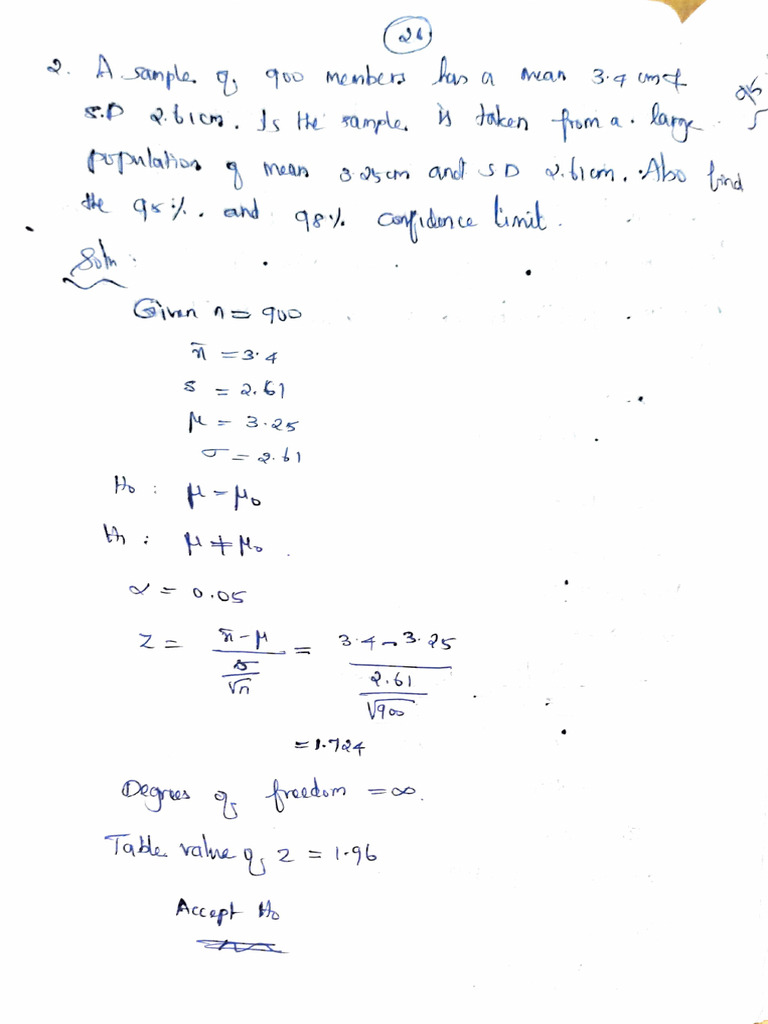 26
2. A sample of 900 members has a mean 3.4 cm &
S.D 2.61cm. Is the sample is taken from a large
population of mean 3.25cm and SD 2.61cm. Also find
the 95%. and 98% confidence limit.
Soln:
Given n = 900
x̄ = 3.4
s = 2.61
μ = 3.25
σ = 2.61
H₀ : μ = μ₀
H₁ : μ ≠ μ₀.
α = 0.05
Z = (x̄ - μ) / (s/√n) = (3.4 - 3.25) / (2.61/√900)
= 1.724
Degrees of freedom = ∞.
Table value of z = 1.96
Accept H₀